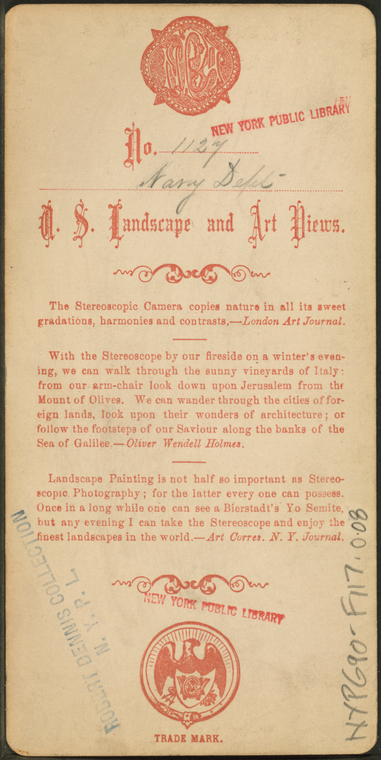 NEW YORK PUBLIC LIBRARY
No. 1127
Navy Dept
U. S. Landscape and Art Views.
The Stereoscopic Camera copies nature in all its sweet
gradations, harmonies and contrasts.—London Art Journal.
With the Stereoscope by our fireside on a winter's even-
ing, we can walk through the sunny vineyards of Italy:
from our arm-chair look down upon Jerusalem from the
Mount of Olives. We can wander through the cities of for-
eign lands, look upon their wonders of architecture; or
follow the footsteps of our Saviour along the banks of the
Sea of Galilee.—Oliver Wendell Holmes.
Landscape Painting is not half so important as Stereo-
scopic Photography; for the latter every one can possess.
Once in a long while one can see a Bierstadt's Yo Semite,
but any evening I can take the Stereoscope and enjoy the
finest landscapes in the world.—Art Corres. N. Y. Journal.
ROBERT DENNIS COLLECTION
N. Y. P. L.
NEW YORK PUBLIC LIBRARY
NYPG90-F117.008
TRADE MARK.